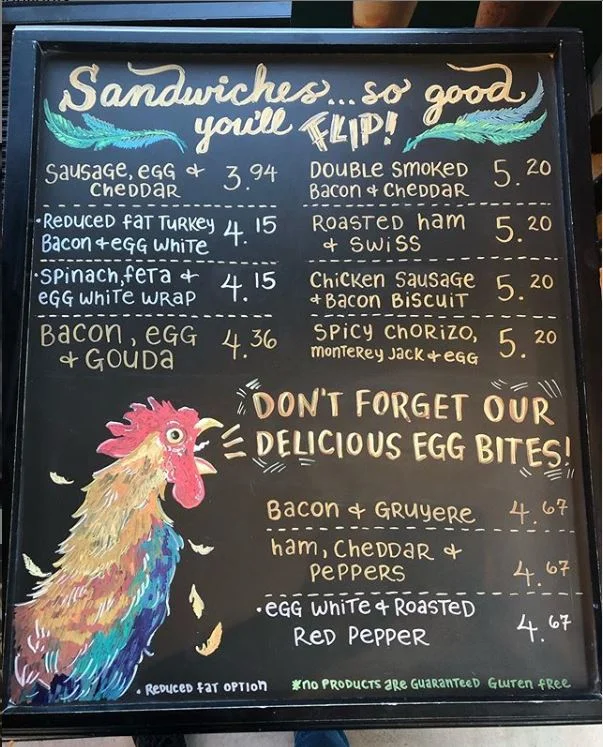 Sandwiches...so good
you'll FLIP!
Sausage, egg + Cheddar 3.94
•Reduced fat Turkey Bacon + egg white 4.15
•Spinach, feta + egg white wrap 4.15
Bacon, egg + Gouda 4.36
Double Smoked Bacon + Cheddar 5.20
Roasted ham + Swiss 5.20
Chicken Sausage + Bacon Biscuit 5.20
Spicy Chorizo, Monterey Jack + egg 5.20
DON'T FORGET OUR
DELICIOUS EGG BITES!
Bacon + Gruyere 4.67
ham, Cheddar + Peppers 4.67
•egg white + Roasted Red Pepper 4.67
• Reduced fat option
*no products are guaranteed gluten free